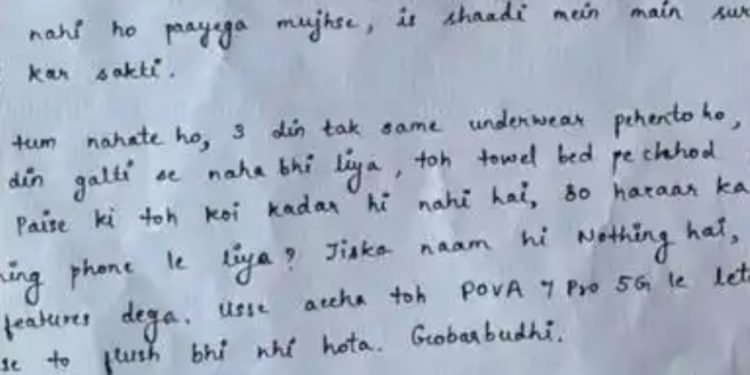 nahi ho paayega mujhse, is shaadi mein main sur
kar sakti.
tum nahate ho, 3 din tak same underwear pehento ho,
din galti se naha bhi liya, toh towel bed pe chhod
Paise ki toh koi kadar hi nahi hai, 80 hazaar ka
ing phone le liya? Jiska naam hi Nothing hai,
features dega. Usse accha toh POVA 7 Pro 5G le leta
se to flush bhi nhi hota. Gobarbudhi.